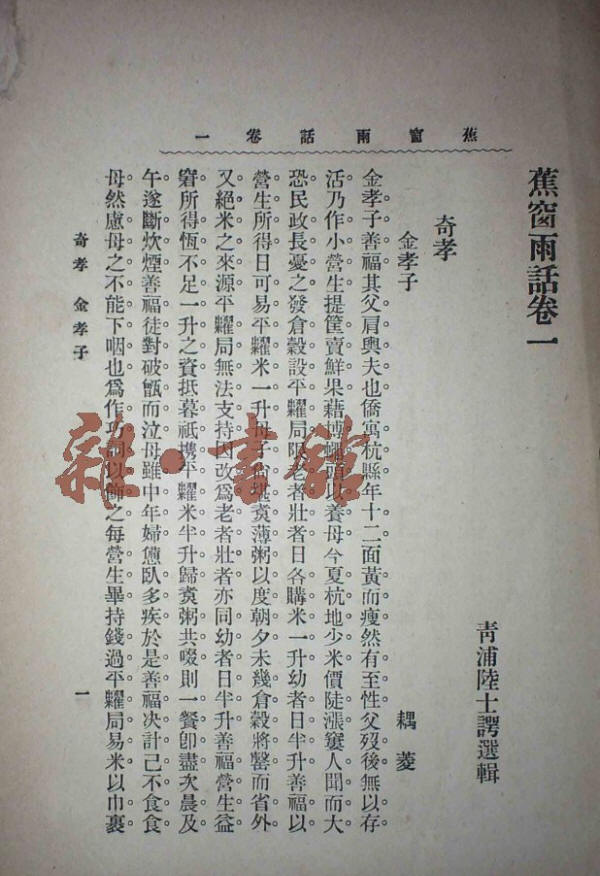 蕉窗雨話卷一
蕉窗雨話卷一
青浦陸士諤選輯
奇孝
金孝子
耦菱
金孝子善福其父肩輿夫也僑寓杭縣年十二面黃而瘦然有至性父歿後無以存
活乃作小營生提筐賣鮮果藉博蠅頭以養母今夏杭地少米價陡漲窶人聞而大
恐民政長憂之發倉穀設平糶局限老者壯者日各購米一升幼者日半升善福以
營生所得日可易平糶米一升母子尚堪煑薄粥以度朝夕未幾倉穀將罄而省外
又絕米之來源平糶局無法支持因改爲老者壯者亦同幼者日半升善福營生益
窘所得恆不足一升之資抵暮祗携平糶米半升歸煑粥共啜則一餐卽盡次晨及
午遂斷炊煙善福徒對破甑而泣母雖中年婦憊臥多疾於是善福决計己不食食
母然慮母之不能下咽也爲作巧詞以飾之每營生畢持錢過平糶局易米以巾裹
奇孝 金孝子
一
雜·書館